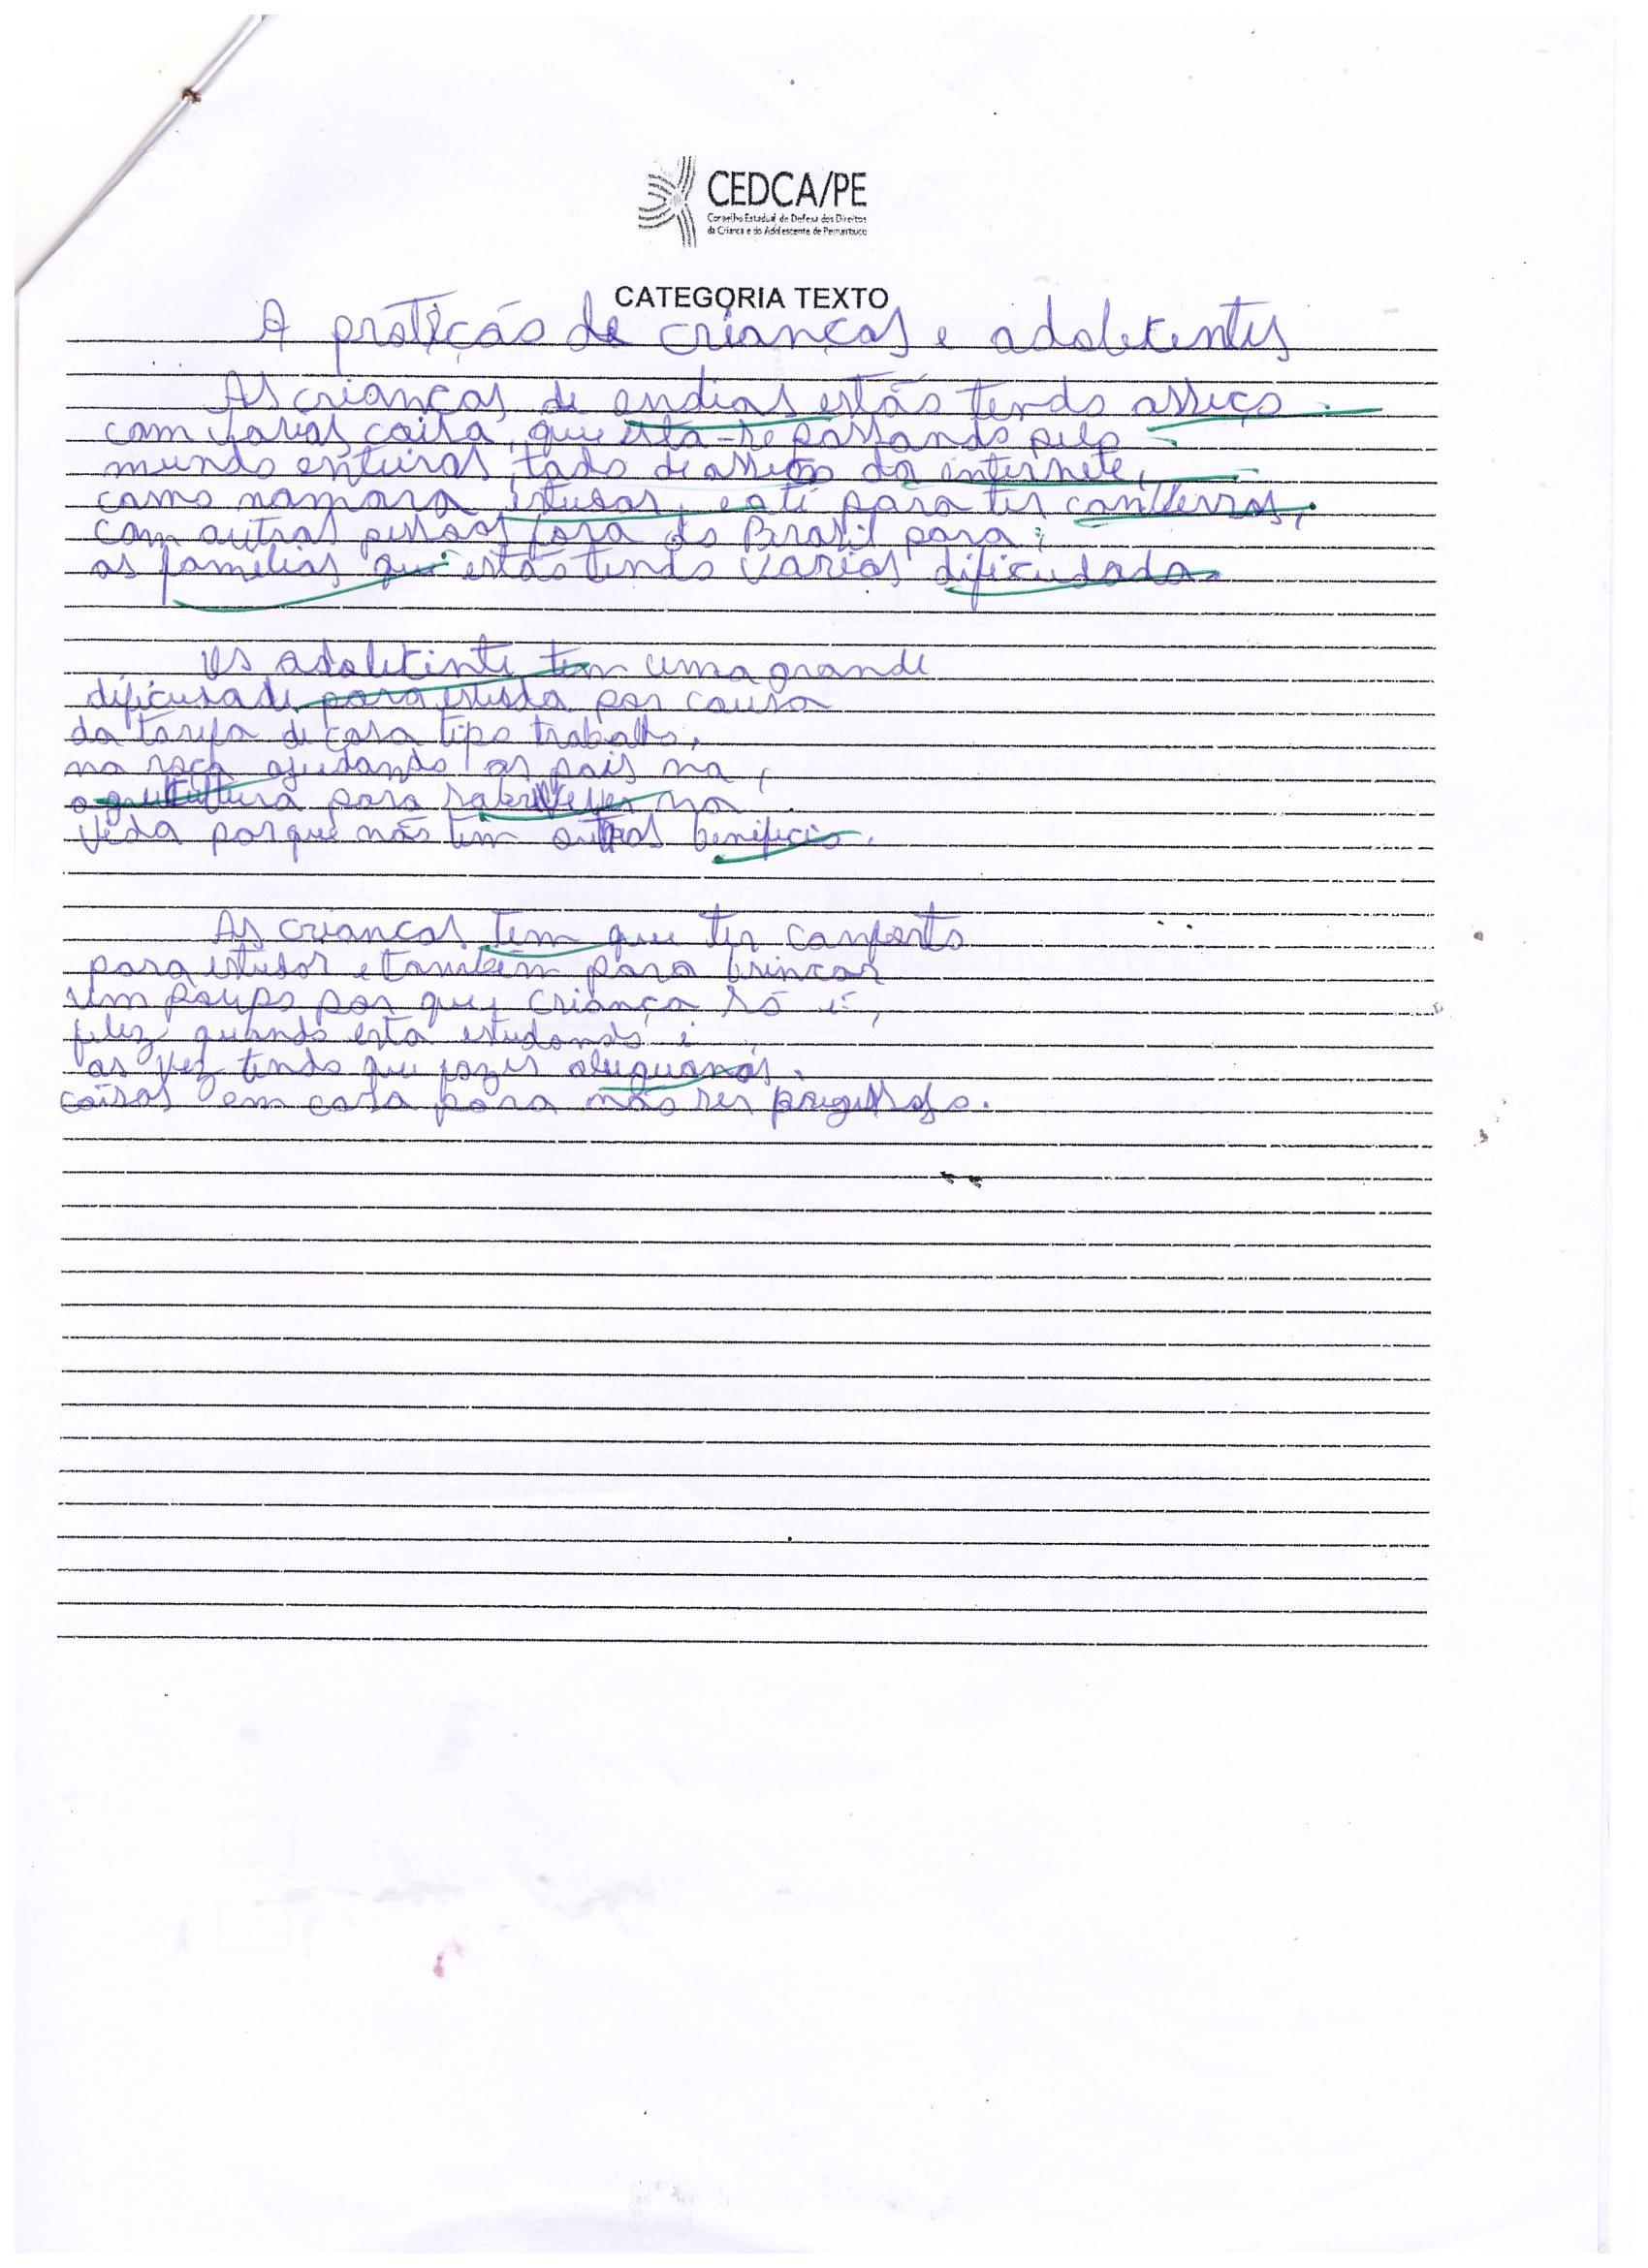 CEDCA/PE
Conselho Estadual de Defesa dos Direitos
da Criança e do Adolescente de Pernambuco
CATEGORIA TEXTO
A proteção de crianças e adoletentes
As crianças de endias estão tendo asseço
com varias coisa, que esta-se passando pelo
mundo enteiros, tado de asseço da enternete,
como namora estudos, e até para ter conversas,
com outras pessoas fora do Brasil para;
as famelias que estão tendo varios dificudada.
Us adoletinte tem uma grande
dificusade para estuda por causa
da tarefa de casa tipo trabalho,
na roça ajudando os pais na,
para na
veda porque não tem outros benificio.
As criancas tem que ter comforto
para estudar e também para brincar
um poupo por que, criança só é,
feliz quando esta estudando i
as vez tendo que fazer
coisas em casa para não ser